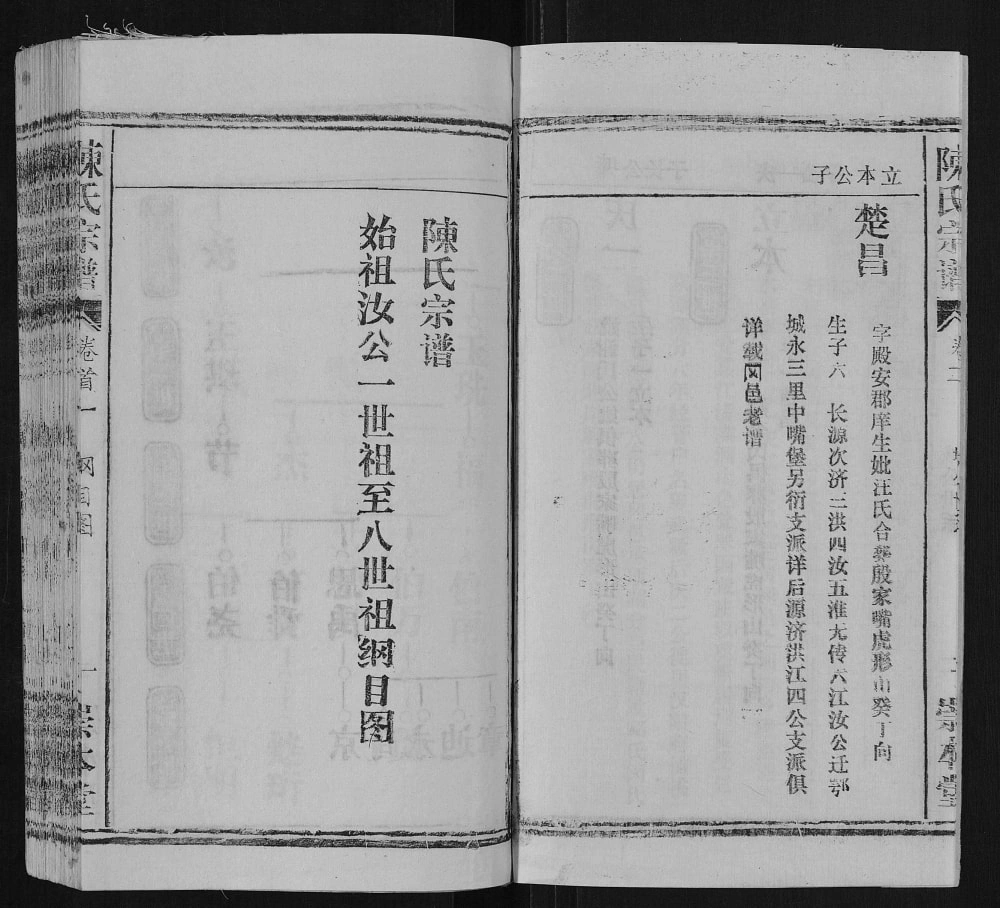 陳氏宗譜
卷二
崇本堂
立本公子
楚昌
字殿安郡庠生妣汪氏合葬殷家嘴虎形山癸丁向
生子六 长源次济三洪四汝五淮无传六江汝公迁鄂
城永三里中嘴堡另衍支派详后源济洪江四公支派俱
详载冈邑老谱
陳氏宗谱
始祖汝公一世祖至八世祖纲目图
陳氏宗譜
卷首一 纲目图
一
崇本堂